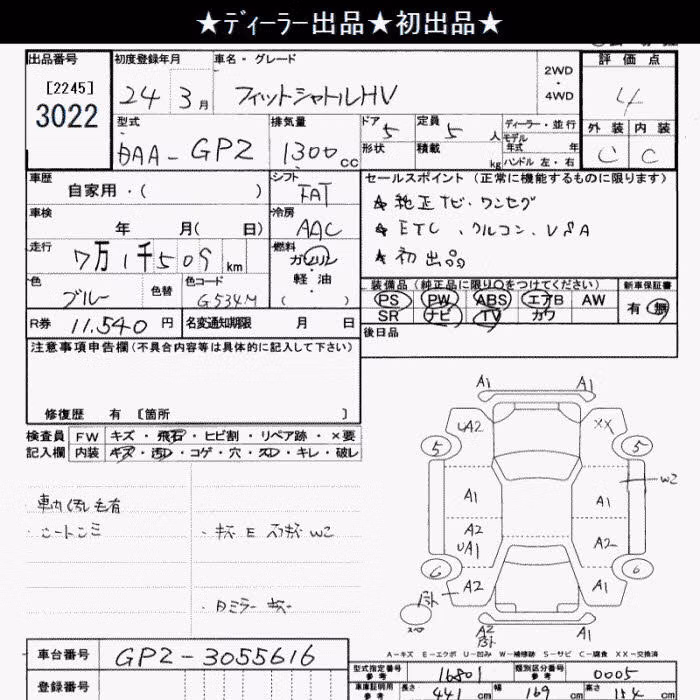 ★ディーラー出品★初出品★
出品番号 初度登録年月 車名・グレード 評価点
[2245]
3022
24 3月 フィットシャトルHV
2WD
・
4WD
4
型式 排気量 ドア 定員 ディーラー・並行 外装 内装
DAA-GP2 1300cc 5 5人 モデル年式 年
形状 積載 kg ハンドル 左・右 C C
車歴 シフト セールスポイント (正常に機能するものに限ります)
自家用・( ) FAT ★ 純正TV、ワンセグ
車検 冷房 ★ ETC、クルコン、VSA
年 月( 日) AAC ★ 初出品
走行 燃料
7万1千509km ガソリン
軽油
( )
色 色替 色コード 装備品 (純正品に限り○をつけてください) 新車保証書
ブルー G534M PS PW ABS エアB AW 有 無
SR ナビ TV カワ
R券 11,540 円 名変通知期限 月 日 後日品
注意事項申告欄(不具合内容等は具体的に記入して下さい)
修復歴 有 [箇所 ]
検査員 FW キズ・飛石・ヒビ割・リペア跡・×要
記入欄 内装 キズ・汚れ・コゲ・穴・スレ・キレ・破レ
A1 A1
UA2 XX
5 5
W2
A1 A1
A2
UA1 A2
6 6
A2 A1
スペア
A2 A1
A-キズ E-エクボ U-凹み W-補修跡 S-サビ C-腐食 XX-交換済
車台番号 GP2-3055616
型式指定番号 参考 16801 類別区分番号 参考 0005
登録番号 車庫証明用 参考 長さ 441 cm 幅 169 cm 高さ 154 cm